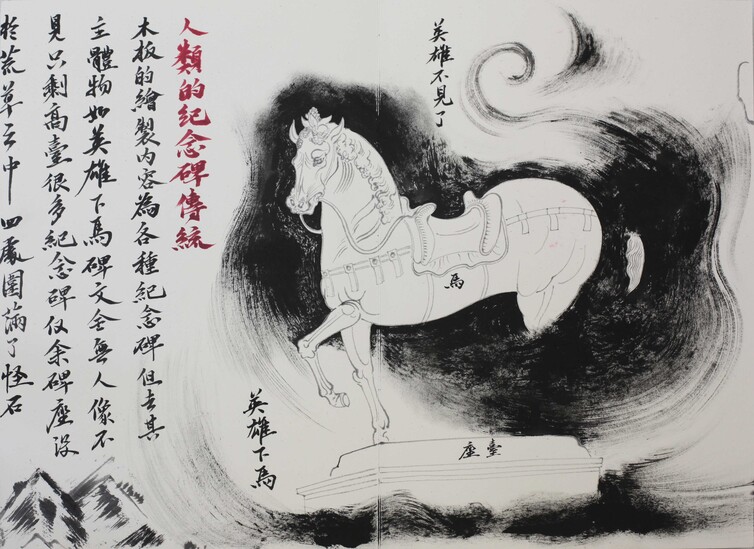 人類的紀念碑傳統
木板的繪製内容為各種紀念碑但去其
主體物如英雄下馬碑文全無人像不
見只剩高臺很多紀念碑仅余碑座没
於荒草之中四處圍滿了怪石
英雄不見了
馬
臺座
英雄下馬